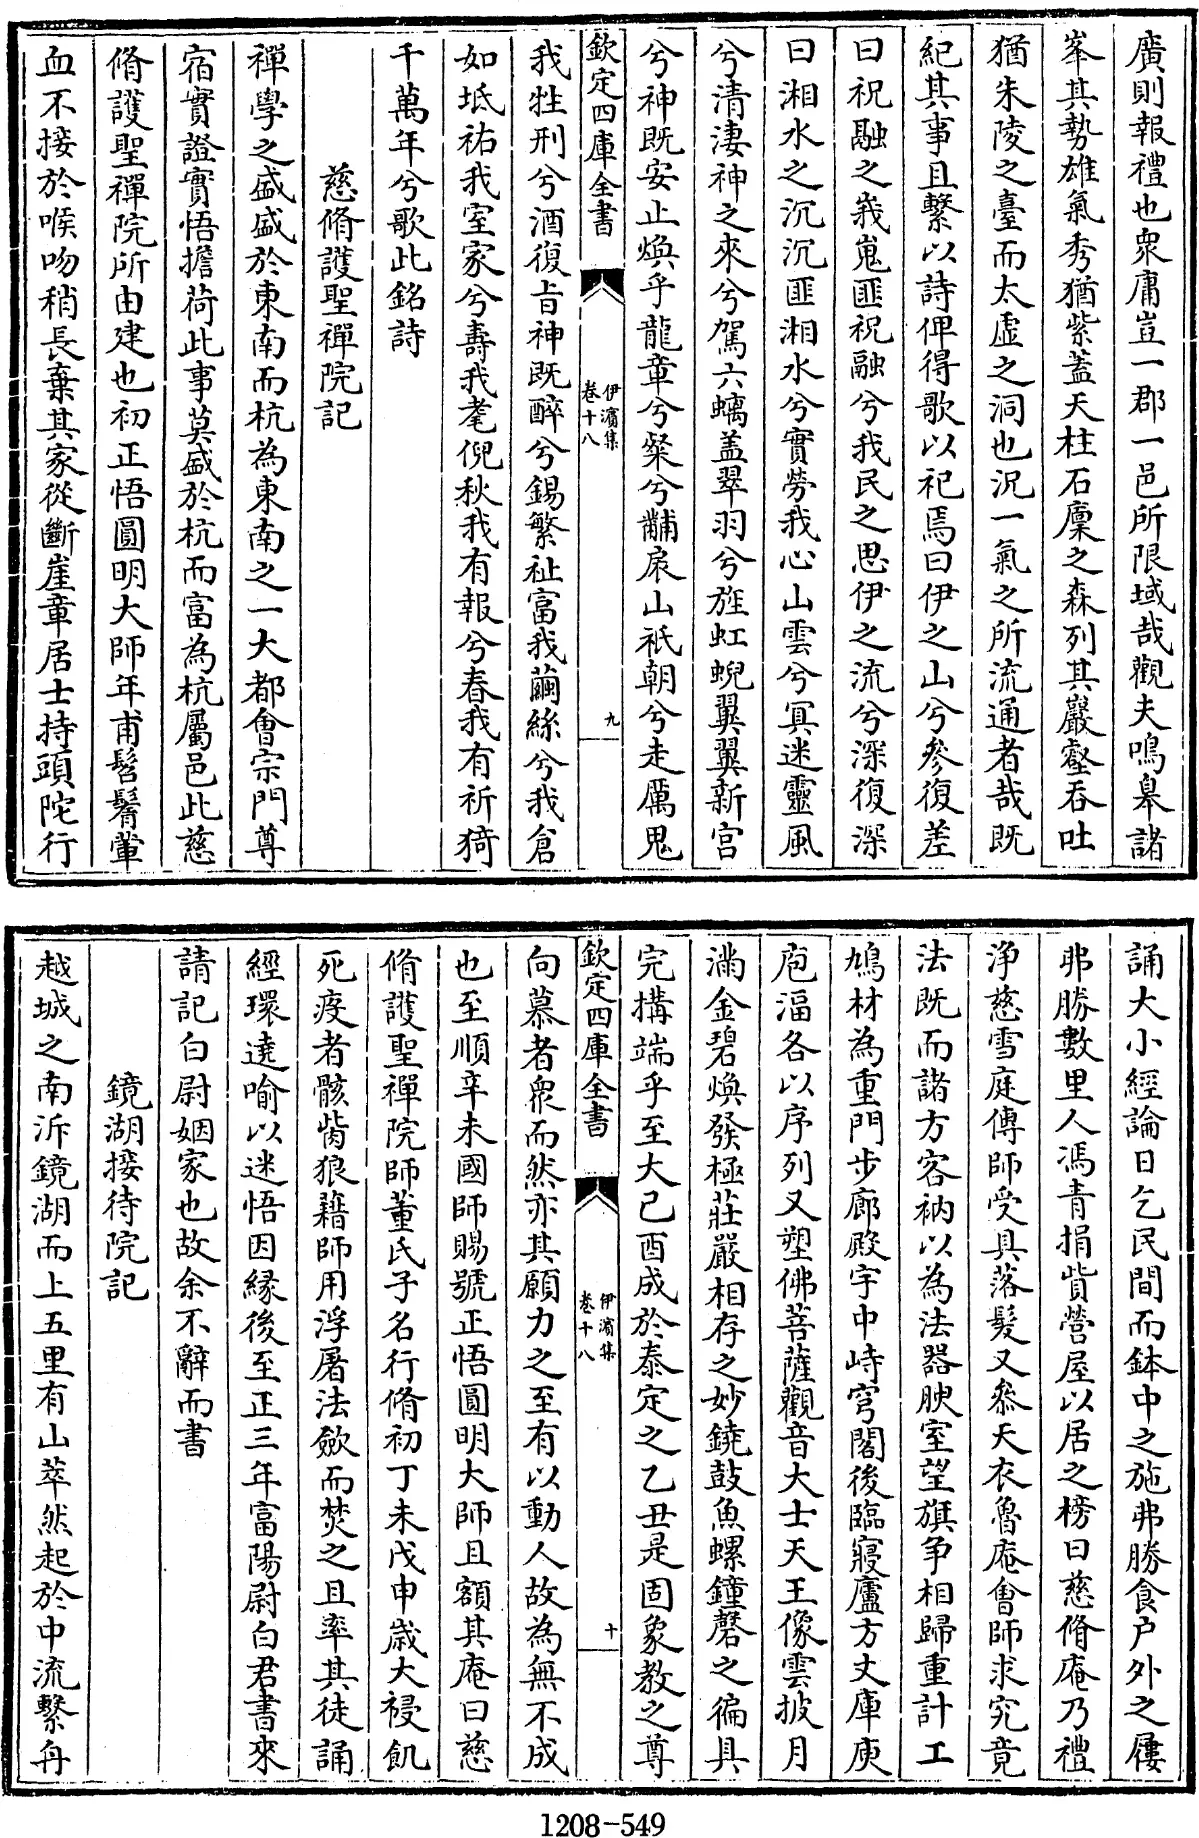 廣則報禮也衆庸豈一郡一邑所限域哉觀夫鳴臯諸
峯其勢雄氣秀猶紫蓋天柱石廩之森列其巖壑吞吐
猶朱陵之臺而太虛之洞也況一氣之所流通者哉既
紀其事且繫以詩俾得歌以祀焉曰伊之山兮參復差
曰祝融之峩嵬匪祝融兮我民之思伊之流兮深復深
曰湘水之沉沉匪湘水兮實勞我心山雲兮冥迷靈風
兮清淒神之來兮駕六螭盖翠羽兮旌虹蜺翼翼新宮
兮神既安止煥乎龍章兮粲兮黼扆山祇朝兮走厲鬼
欽定四庫全書
伊濱集
卷十八
九
我牲刑兮酒復旨神既醉兮錫繁祉富我繭絲兮我倉
如坻祐我室家兮壽我耄倪秋我有報兮春我有祈猗
千萬年兮歌此銘詩
慈脩護聖禪院記
禪學之盛盛於東南而杭為東南之一大都㑹宗門尊
宿實證實悟擔荷此事莫盛於杭而富為杭屬邑此慈
脩護聖禪院所由建也初正悟圓明大師年甫髫鬌葷
血不接於喉吻稍長棄其家從斷崖章居士持頭陀行
誦大小經論日乞民間而鉢中之施弗勝食户外之屨
弗勝數里人馮青捐貲營屋以居之榜曰慈脩庵乃禮
淨慈雪庭傳師受具落髮又叅天衣魯庵㑹師求究竟
法既而諸方客衲以為法器腴室望旗争相歸重計工
鳩材為重門步廊殿宇中峙穹閣後臨寢廬方丈庫庾
庖湢各以序列又塑佛菩薩觀音大士天王像雲披月
滿金碧煥發極莊嚴相存之妙鐃鼓魚螺鐘磬之徧具
完搆端乎至大己酉成於泰定之乙丑是固象教之尊
欽定四庫全書
伊濱集
卷十八
十
向慕者衆而然亦其願力之至有以動人故為無不成
也至順辛未國師賜號正悟圓明大師且額其庵曰慈
脩護聖禪院師董氏子名行脩初丁未戊申嵗大祲飢
死疫者骸胔狼藉師用浮屠法歛而焚之且率其徒誦
經環遶喻以迷悟因縁後至正三年富陽尉白君書來
請記白尉姻家也故余不辭而書
鏡湖接待院記
越城之南泝鏡湖而上五里有山萃然起於中流繫舟
1208-549